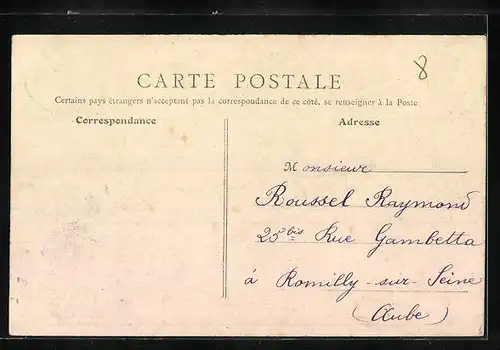 8
CARTE POSTALE
Certains pays étrangers n'acceptant pas la correspondance de ce côté, se renseigner à la Poste
Correspondance
Adresse
Monsieur
Roussel Raymond
25 bis Rue Gambetta
à Romilly-sur-Seine
(Aube)